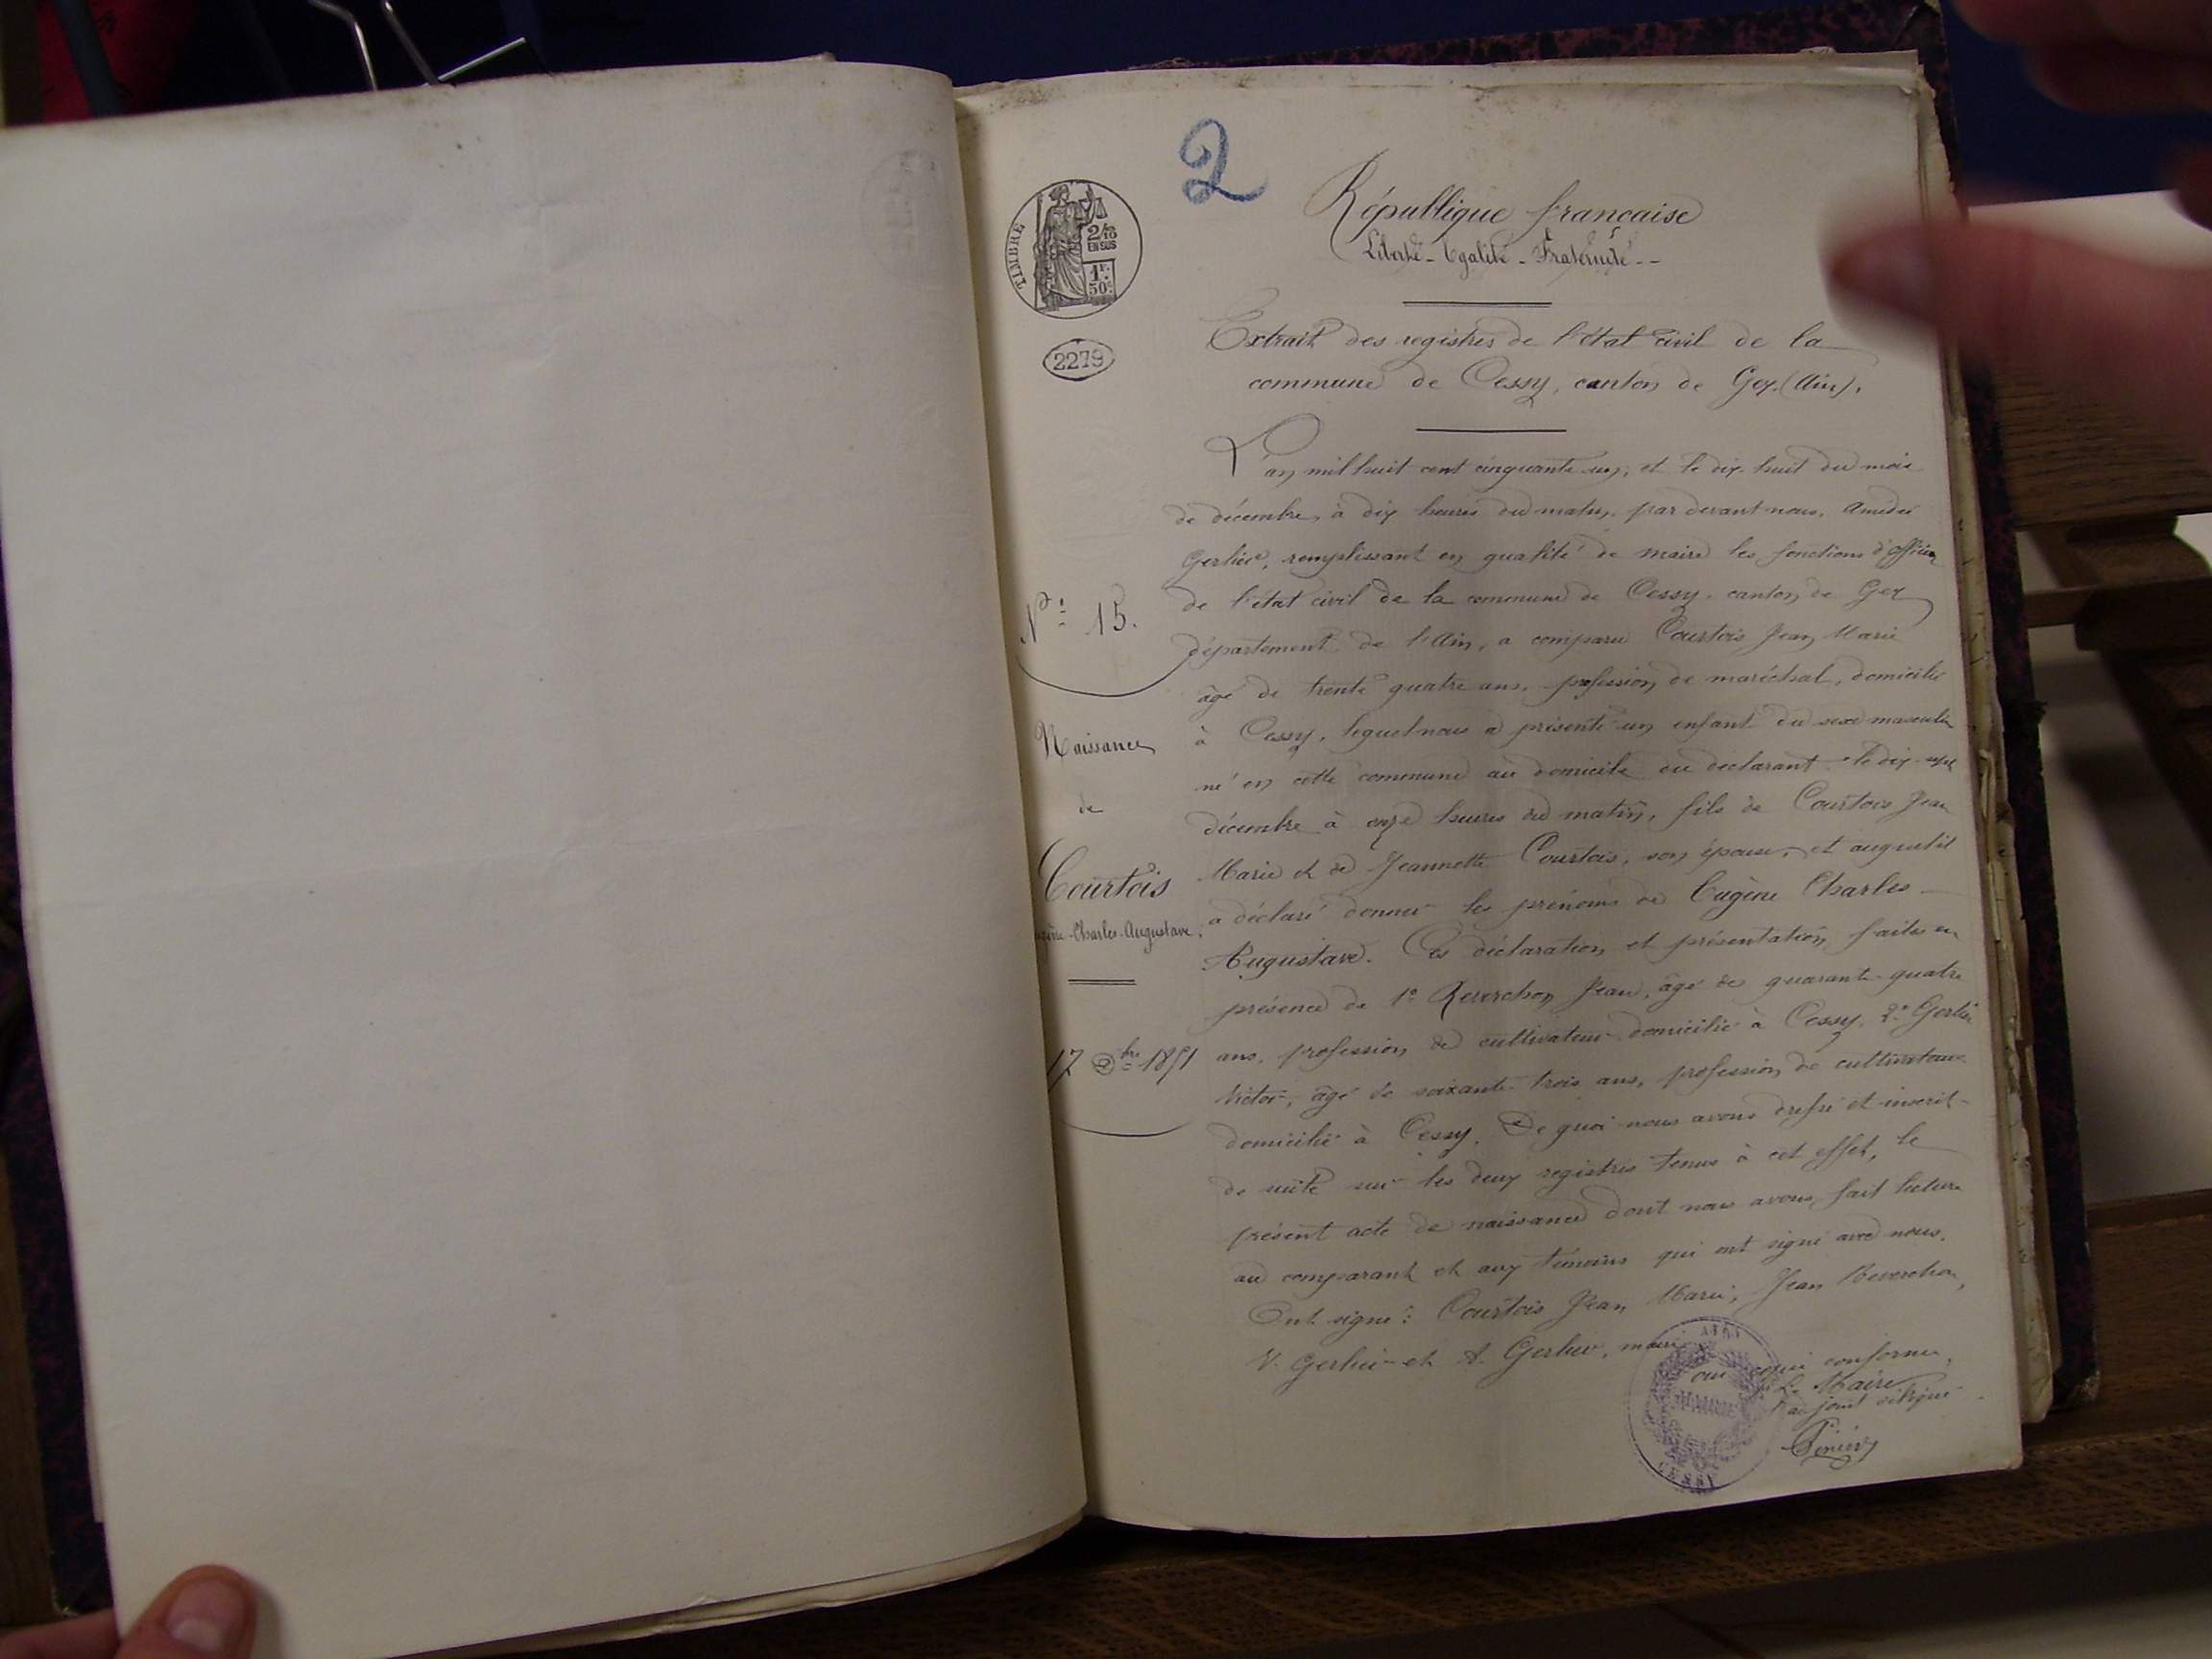 2
République française
Liberté - Egalité - Fraternité --
TIMBRE
2/10
EN SUS
1F.
50c.
2279
Extrait des registres de l'état civil de la
commune de Cessy, canton de Gex (Ain).
L'an mil huit cent cinquante un, et le dix huit du mois
de décembre, à dix heures du matin, par devant nous, Amédée
Gerlier, remplissant en qualité de maire les fonctions d'officier
de l'état civil de la commune de Cessy, canton de Gex
département de l'Ain, a comparu Courtois Jean Marie
âgé de trente quatre ans, profession de maréchal, domicilié
à Cessy, lequel nous a présenté un enfant du sexe masculin
né en cette commune au domicile du déclarant le dix-sept
décembre à onze heures du matin, fils de Courtois Jean
Marie et de Jeannette Courtois, son épouse, et auquel il
a déclaré donner les prénoms de Eugène Charles
Augustave. Ces déclaration et présentation faites en
présence de 1° Reverchon Jean, âgé de quarante-quatre
ans, profession de cultivateur domicilié à Cessy, 2° Gerlier
Victor, âgé de soixante-trois ans, profession de cultivateur
domicilié à Cessy. De quoi nous avons dressé et inscrit
de suite sur les deux registres tenus à cet effet, le
présent acte de naissance dont nous avons fait lecture
au comparant et aux témoins qui ont signé avec nous.
Ont signé : Courtois Jean Marie, Jean Reverchon,
V. Gerlier et A. Gerlier, maire
copie conforme,
Le Maire
MAIRIE
CESSY
N° 15.
Naissance
de
Courtois
Eugène-Charles-Augustave.
17 Dbre 1851